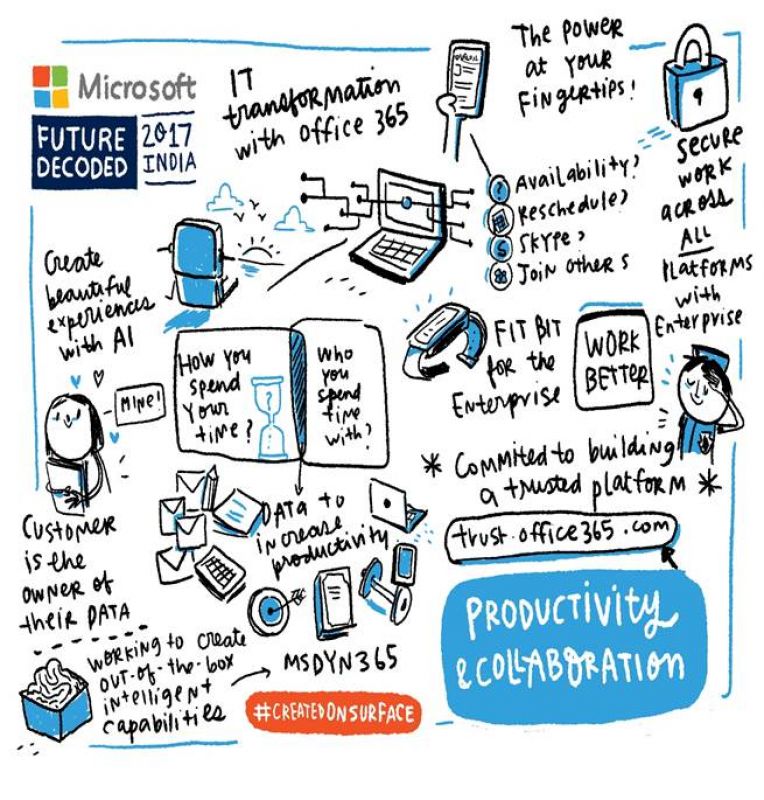 Microsoft
FUTURE
DECODED
2017
INDIA
IT
transformation
with Office 365
The Power
at Your
Fingertips!
Availability?
Reschedule?
Skype?
Join others
Secure
work
across
ALL
Platforms
with
Enterprise
Create
beautiful
experiences
with AI
How you
spend
your
time?
Who
you
spend
time
with?
?
Fit Bit
for the
Enterprise
WORK
BETTER
MINE!
Customer
is the
owner of
their DATA
DATA to
increase
productivity
* Commited to building
a trusted platform *
trust.office365.com
PRODUCTIVITY
& COLLABORATION
Working to create
out-of-the-box
intelligent
capabilities
MSDYN365
#CREATEDONSURFACE